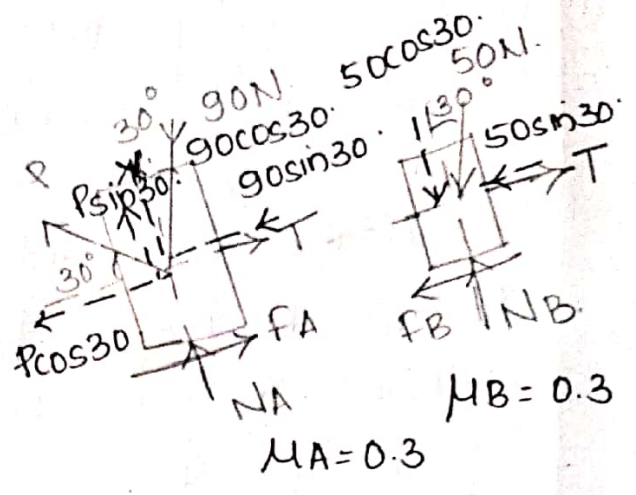 50cos30.
50N.
30°
90N.
30°
90cos30.
50sin30.
90sin30.
P
Psin30.
T
T
30°
Pcos30
FA
NA
FB
NB.
μB = 0.3
μA = 0.3